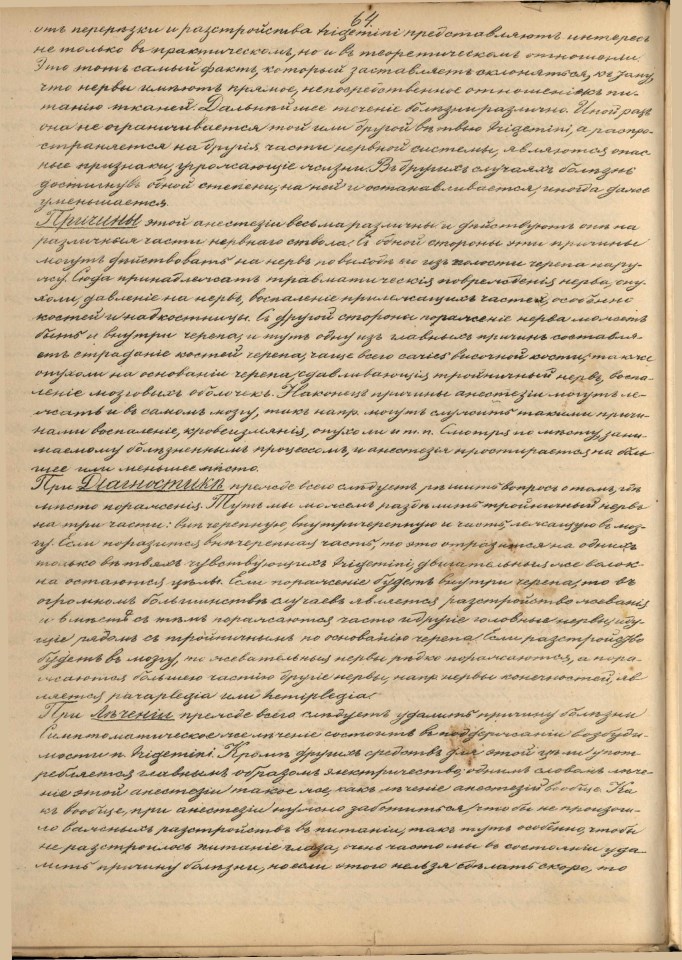 64.
отъ перерѣзки и разстройства trigemini представляютъ интересъ
не только въ практическомъ, но и въ теоретическомъ отношеніи.
Это тотъ самый фактъ, который заставляетъ склоняться къ тому,
что нервы имѣютъ прямое, непосредственное отношеніе къ пи-
танію тканей. Дальнѣйшее теченіе болѣзни различно. Иной разъ
она не ограничивается той или другой вѣтвью trigemini, а распро-
страняется на другія части нервной системы, являются опас-
ные признаки, угрожающіе жизни. Въ другихъ случаяхъ болѣзнь
достигнувъ одной степени, на ней и останавливается, иногда даже
уменьшается.
Причины этой анестезіи весьма различны и дѣйствуютъ онѣ на
различныя части нервнаго ствола. Съ одной стороны эти причины
могутъ дѣйствовать на нервъ по выходѣ его изъ полости черепа нару-
жу. Сюда принадлежатъ травматическія поврежденія нерва, опу-
холи, давленіе на нервъ, воспаленіе прилежащихъ частей, особенно
костей и надкостницы. Съ другой стороны пораженіе нерва можетъ
быть и внутри черепа, и тутъ одну изъ главныхъ причинъ составля-
етъ страданіе костей черепа, чаще всего caries височной кости, также
опухоли на основаніи черепа, сдавливающія тройничный нервъ, воспа-
леніе мозговыхъ оболочекъ. Наконецъ причины анестезіи могутъ ле-
жать и въ самомъ мозгу, такъ напр. могутъ служить такими причи-
нами воспаленіе, кровеизліянія, опухоли и т. п. Смотря по мѣсту, зани-
маемому болѣзненнымъ процессомъ, и анестезія простирается на боль-
шее или меньшее мѣсто.
При Діагностикѣ прежде всего слѣдуетъ рѣшить вопросъ о томъ, гдѣ
мѣсто пораженія. Тутъ мы можемъ раздѣлить тройничный нервъ
на три части: внѣчерепную, внутричерепную и часть лежащую въ моз-
гу. Если поразится внѣчерепная часть, то это отразится на однихъ
только вѣтвяхъ чувствующихъ trigemini, двигательныя же волок-
на остаются цѣлы. Если пораженіе будетъ внутри черепа, то въ
огромномъ большинствѣ случаевъ является разстройство жеванія
и вмѣстѣ съ тѣмъ поражаются часто и другіе головные нервы, иду-
щіе рядомъ съ тройничнымъ по основанію черепа. Если разстройство
будетъ въ мозгу, то жевательные нервы рѣдко поражаются, а пора-
жаются большею частію другіе нервы, напр. нервы конечностей, яв-
ляется paraplegia или hemiplegia.
При Лѣченіи прежде всего слѣдуетъ удалить причину болѣзни
Симптоматическое же лѣченіе состоитъ въ поддержаніи возбуди-
мости n. trigemini. Кромѣ другихъ средствъ для этой цѣли упот-
ребляется главнымъ образомъ электричество, однимъ словомъ лѣче-
ніе этой анестезіи такое же, какъ лѣченіе анестезій вообще. Ка-
къ вообще, при анестезіи нужно заботиться, чтобы не произош-
ло важныхъ разстройствъ въ питаніи, такъ тутъ особенно, чтобы
не разстроилось питаніе глаза, очень часто мы въ состояніи уда-
лить причину болѣзни, но если этого нельзя сдѣлать скоро, то